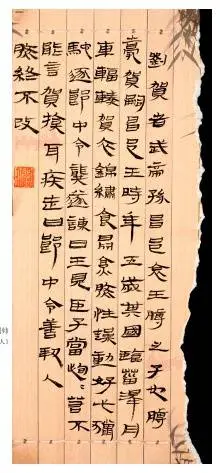 劉賀者武帝孫昌邑哀王髆之子也髆
薨賀嗣昌邑王時年五歲其國臨菑澤舟
車輻輳賀衣錦繡食鼎炙然性躁動好弋獵
馳逐郎中令龔遂諫曰王見臣子當恂恂豈不
能言賀掩耳疾走曰郎中令善人
然終不改
人）